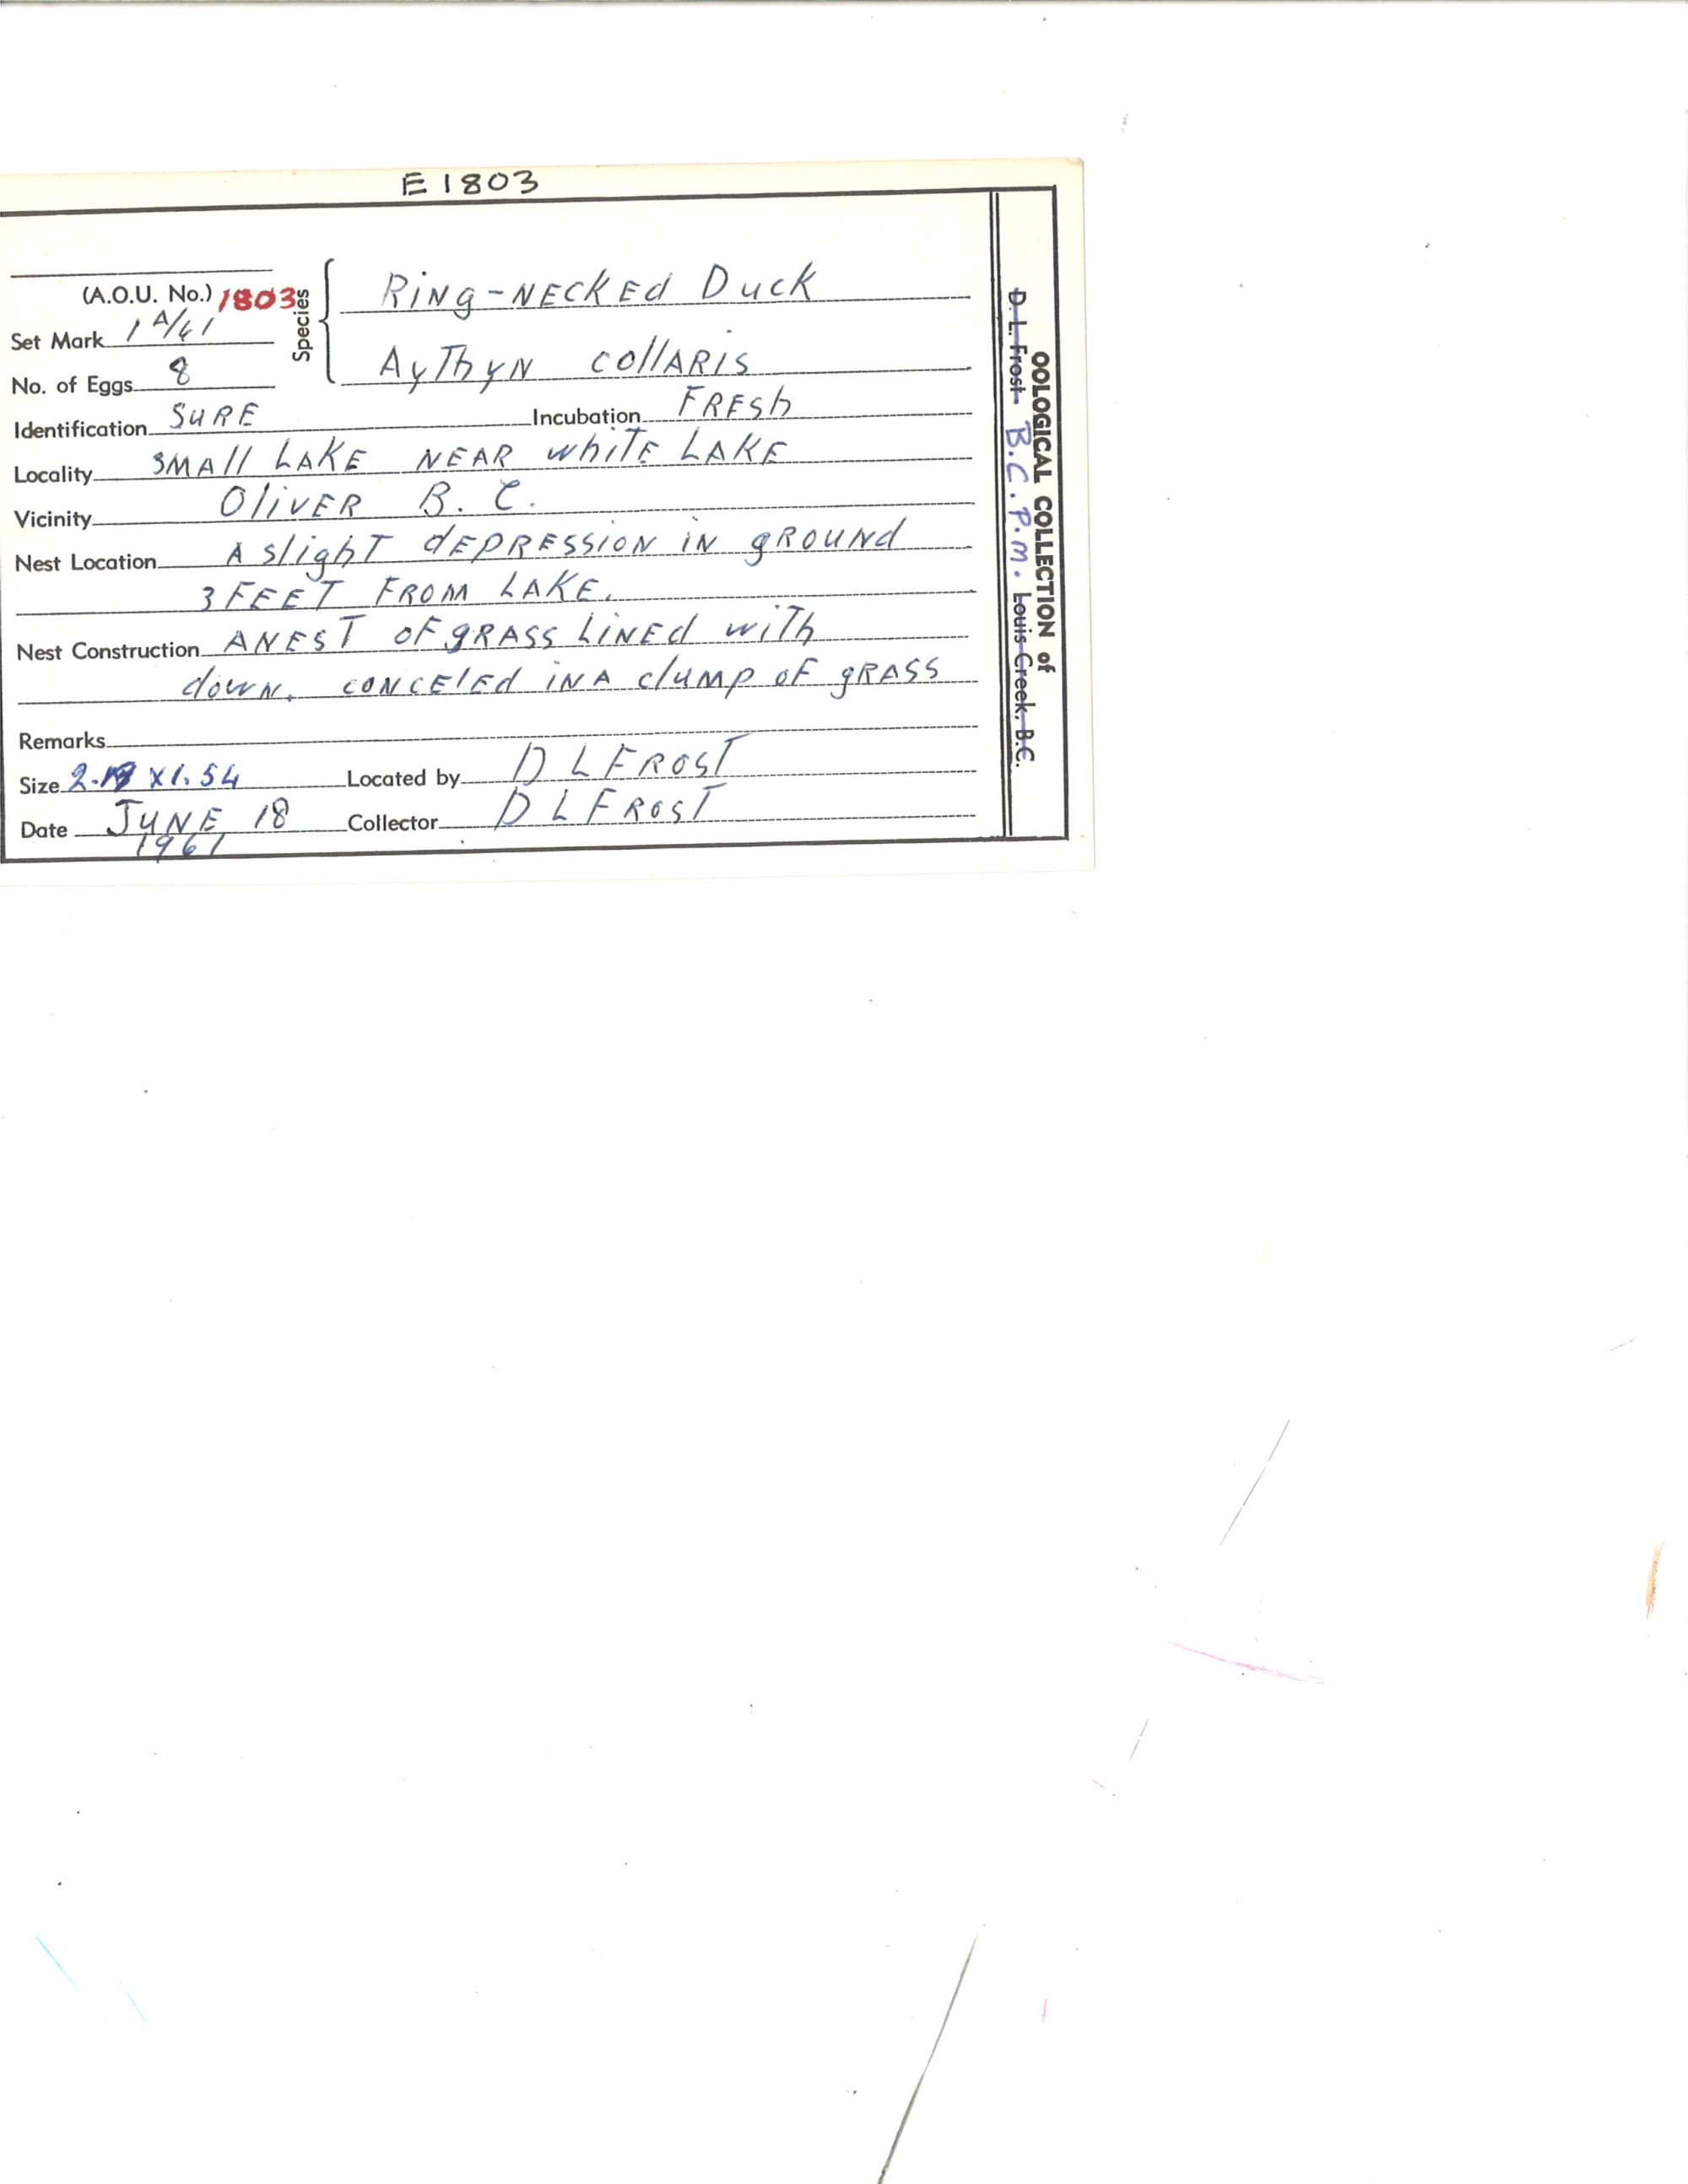 E 1803
(A.O.U. No.) 1803
Species
Ring-NECKEd Duck
Set Mark 1 A/61
AyThyN collARIS
No. of Eggs 8
Identification SURE Incubation FRESh
Locality SMAll LAKE NEAR whiTE LAKE
Vicinity OliVER B. C.
Nest Location A slighT dEPRESSION IN gROUNd
3 FEET FROM LAKE.
Nest Construction A NEST OF gRASS LINEd wiTh
dowN. CONCElEd IN A clUMP OF gRASS
Remarks
Size 2. x 1.54 Located by D L FROST
Date JUNE 18 Collector D L FROST
1961
OOLOGICAL COLLECTION of
D. L. Frost B.C.P.M. Louis Creek, B.C.